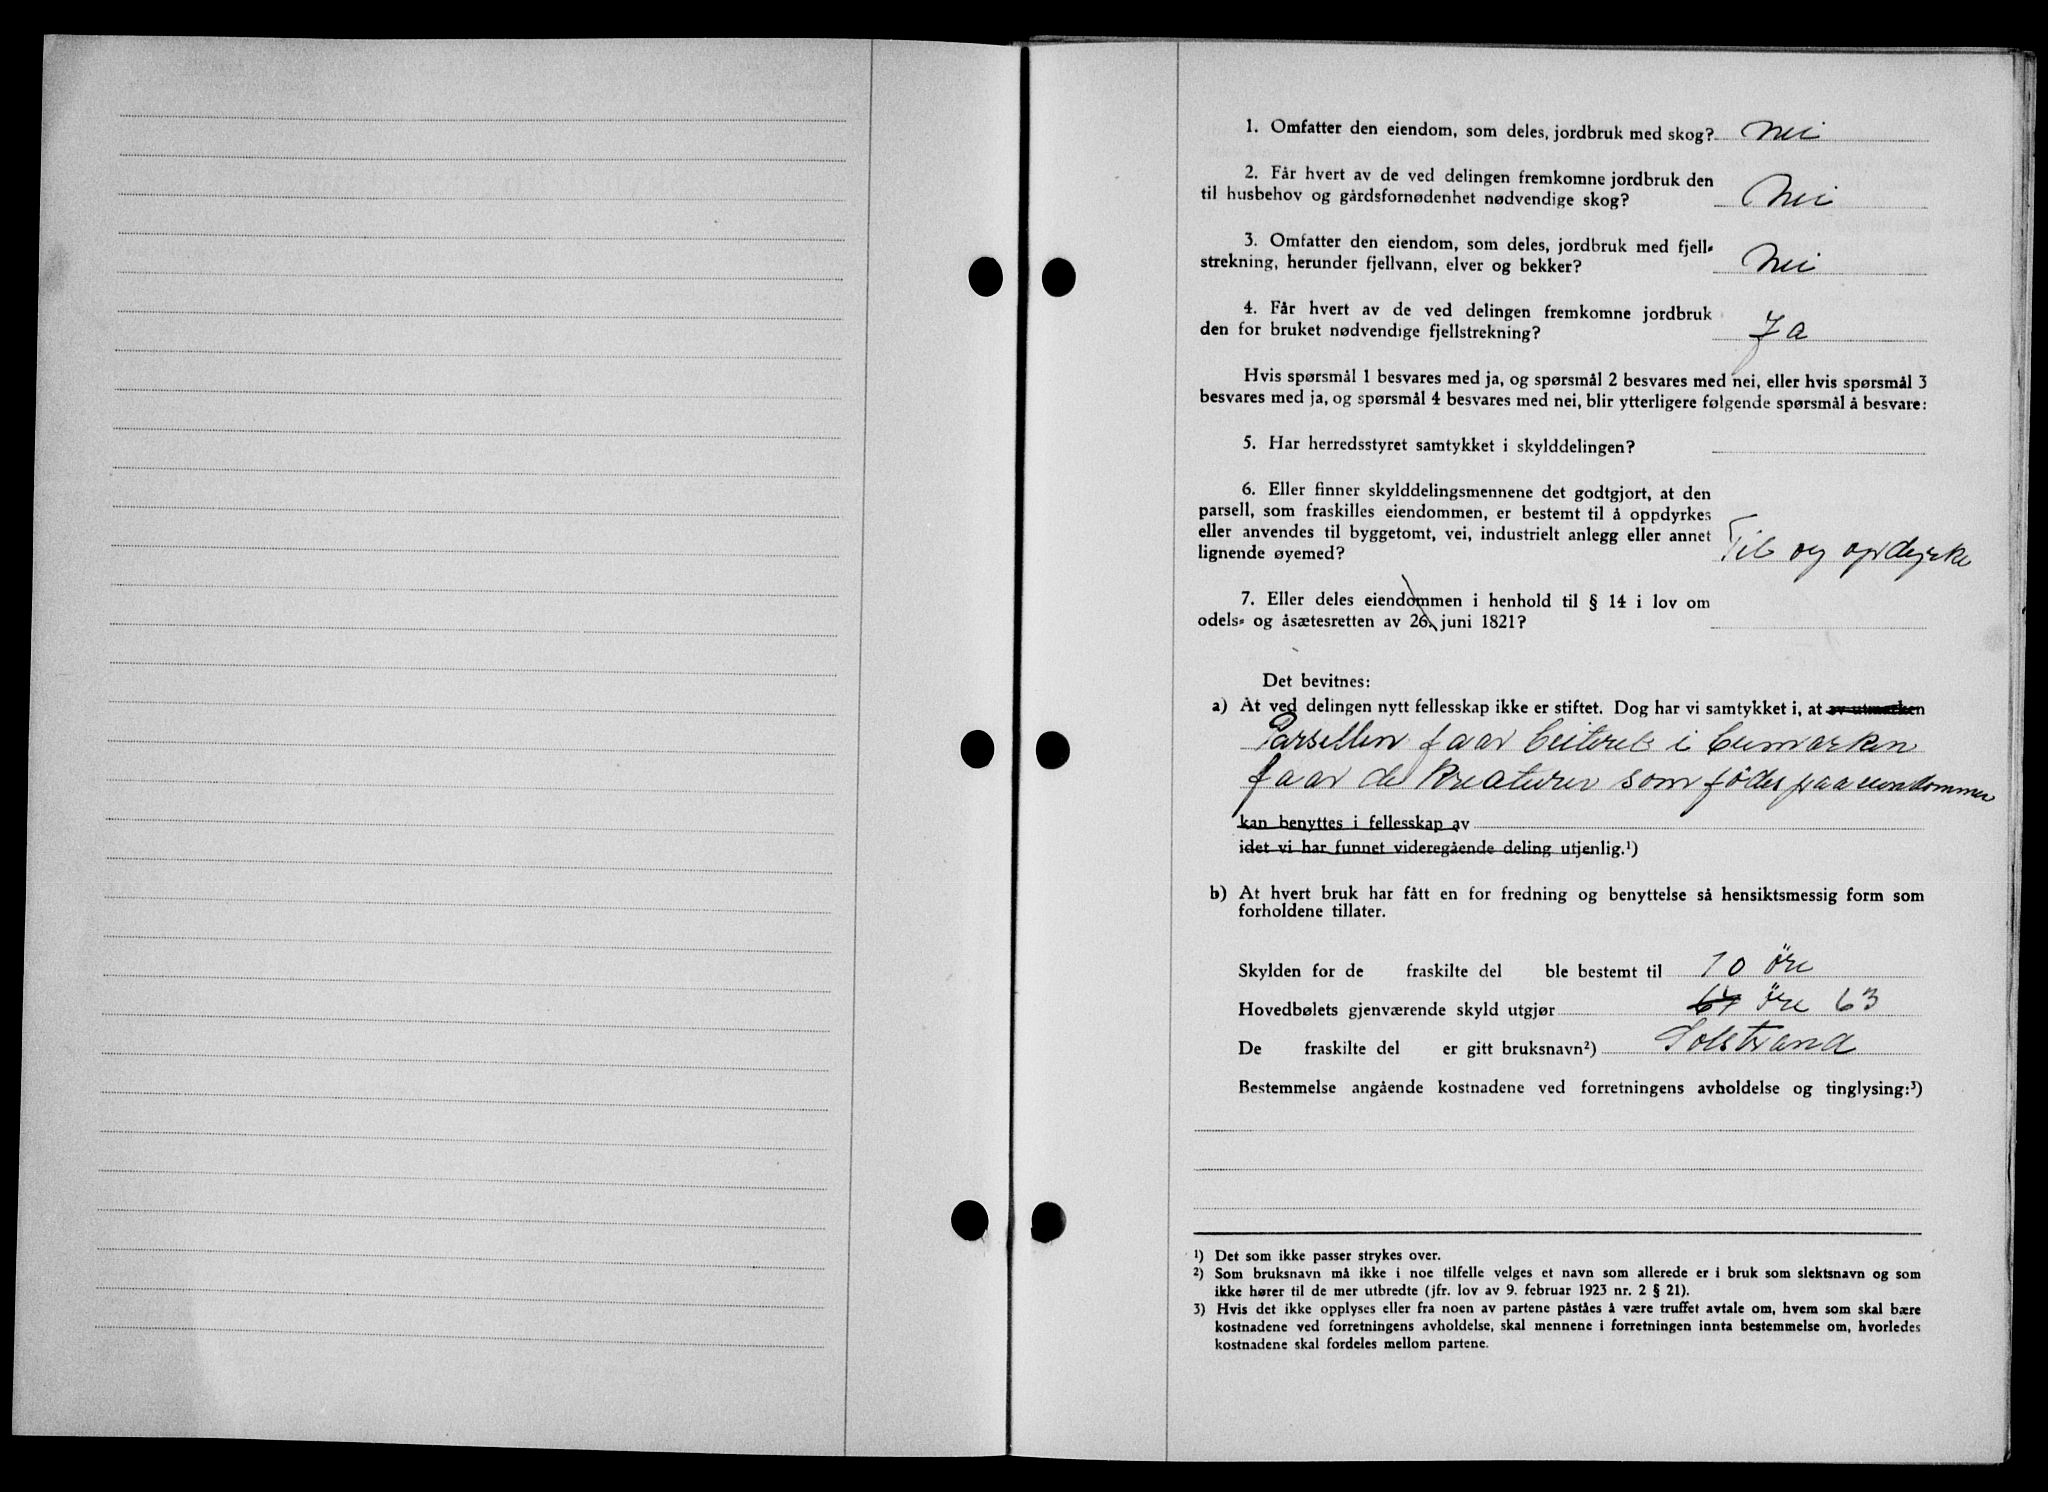 1. Omfatter den eiendom, som deles, jordbruk med skog? Nei
2. Får hvert av de ved delingen fremkomne jordbruk den
til husbehov og gårdsfornødenhet nødvendige skog? Nei
3. Omfatter den eiendom, som deles, jordbruk med fjell-
strekning, herunder fjellvann, elver og bekker? Nei
4. Får hvert av de ved delingen fremkomne jordbruk
den for bruket nødvendige fjellstrekning? Ja
Hvis spørsmål 1 besvares med ja, og spørsmål 2 besvares med nei, eller hvis spørsmål 3
besvares med ja, og spørsmål 4 besvares med nei, blir ytterligere følgende spørsmål å besvare:
5. Har herredsstyret samtykket i skylddelingen?
6. Eller finner skylddelingsmennene det godtgjort, at den
parsell, som fraskilles eiendommen, er bestemt til å oppdyrkes
eller anvendes til byggetomt, vei, industrielt anlegg eller annet
lignende øyemed? Til og opdyrke
7. Eller deles eiendommen i henhold til § 14 i lov om
odels- og åsætesretten av 26. juni 1821?
Det bevitnes:
a) At ved delingen nytt fellesskap ikke er stiftet. Dog har vi samtykket i, at av utmarken
Parsellen faar beiteret i
faar de kreaturer som födes paa eiendommen
kan benyttes i fellesskap av
idet vi har funnet videregående deling utjenlig.¹)
b) At hvert bruk har fått en for fredning og benyttelse så hensiktsmessig form som
forholdene tillater.
Skylden for de fraskilte del ble bestemt til 10 öre
Hovedbølets gjenværende skyld utgjør 64 öre 63
De fraskilte del er gitt bruksnavn²) Solstrand
Bestemmelse angående kostnadene ved forretningens avholdelse og tinglysing:³)
¹) Det som ikke passer strykes over.
²) Som bruksnavn må ikke i noe tilfelle velges et navn som allerede er i bruk som slektsnavn og som
ikke hører til de mer utbredte (jfr. lov av 9. februar 1923 nr. 2 § 21).
3) Hvis det ikke opplyses eller fra noen av partene påståes å være truffet avtale om, hvem som skal bære
kostnadene ved forretningens avholdelse, skal mennene i forretningen innta bestemmelse om, hvorledes
kostnadene skal fordeles mellom partene.